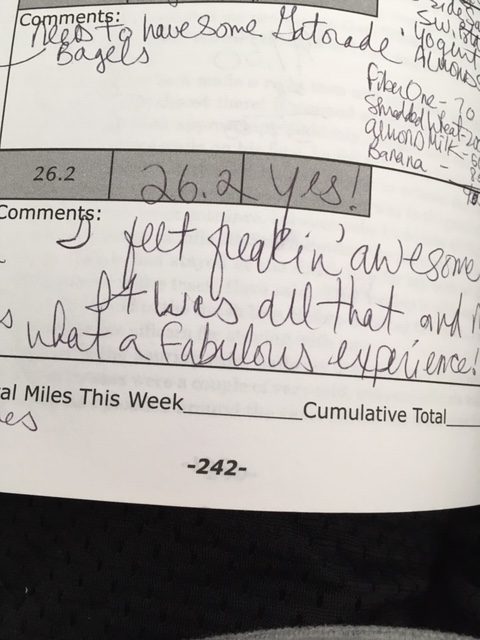 Comments:
Need to have some Gatorade
Bagels
yogurt
Almonds
Fiber One - 70
Shredded Wheat - 20
almond Milk - 60
Banana - 
26.2 26.2 Yes!
Comments:
I felt freakin' awesome
It was all that and
what a Fabulous experience!
al Miles This Week Cumulative Total
es
-242-